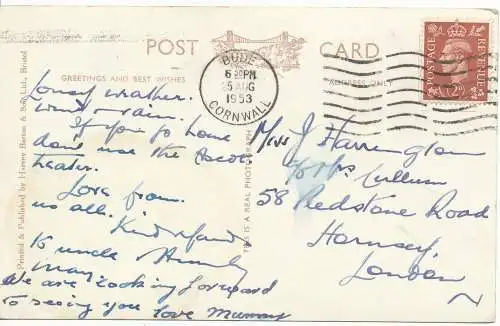 POST CARD
GREETINGS AND BEST WISHES
ADDRESS ONLY
BUDE
6 PM
25 AUG
1953
CORNWALL
POSTAGE
REVENUE
2D
Lousy weather.
Wind & rain.
If you go home
don't use the Ascot
heater.
Love from
us all.
Kind
to uncle
may.
We are looking forward
to seeing you love Mummy
Miss J Harrington
c/o Mrs Cullum
58 Redstone Road
Hornsey
London
N
THIS IS A REAL PHOTOGRAPH
Printed & Published by Harvey Barton & Son, Ltd., Bristol